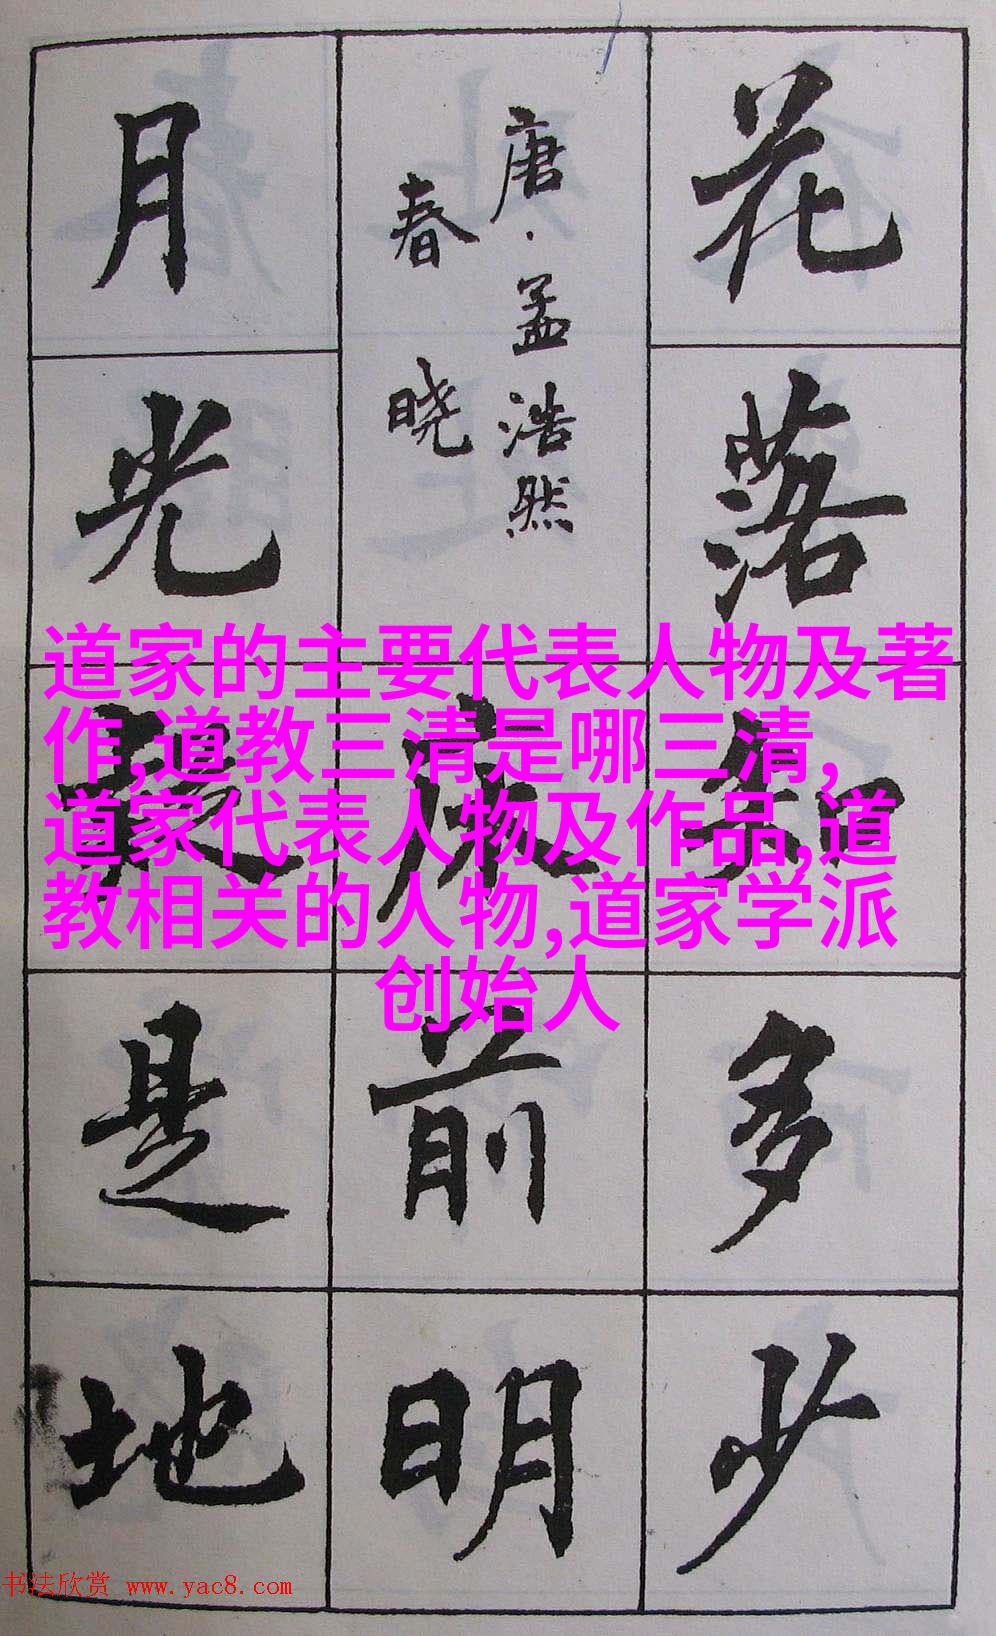 花落知多少
唐·孟浩然
春晓
床前明
月光疑是地
道家的主要代表人物及著
作,道教三清是哪三清,
道家代表人物及作品,道
教相关的人物,道家学派
创始人
书法欣赏 www.yac8.com